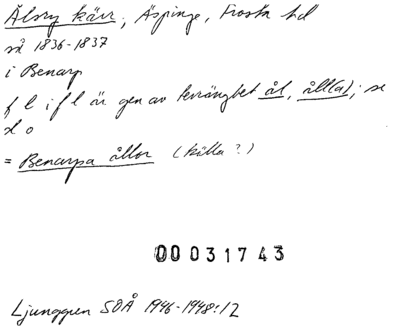 Älsry kärr, Äspinge, Frosta hd
så 1836-1837
i Benarp
f l i f l är gen av terrängbet ål, åll(a); se
d o
= Benarpa ållor (källa?)
00031743
Ljunggren SOÅ 1946-1948:12